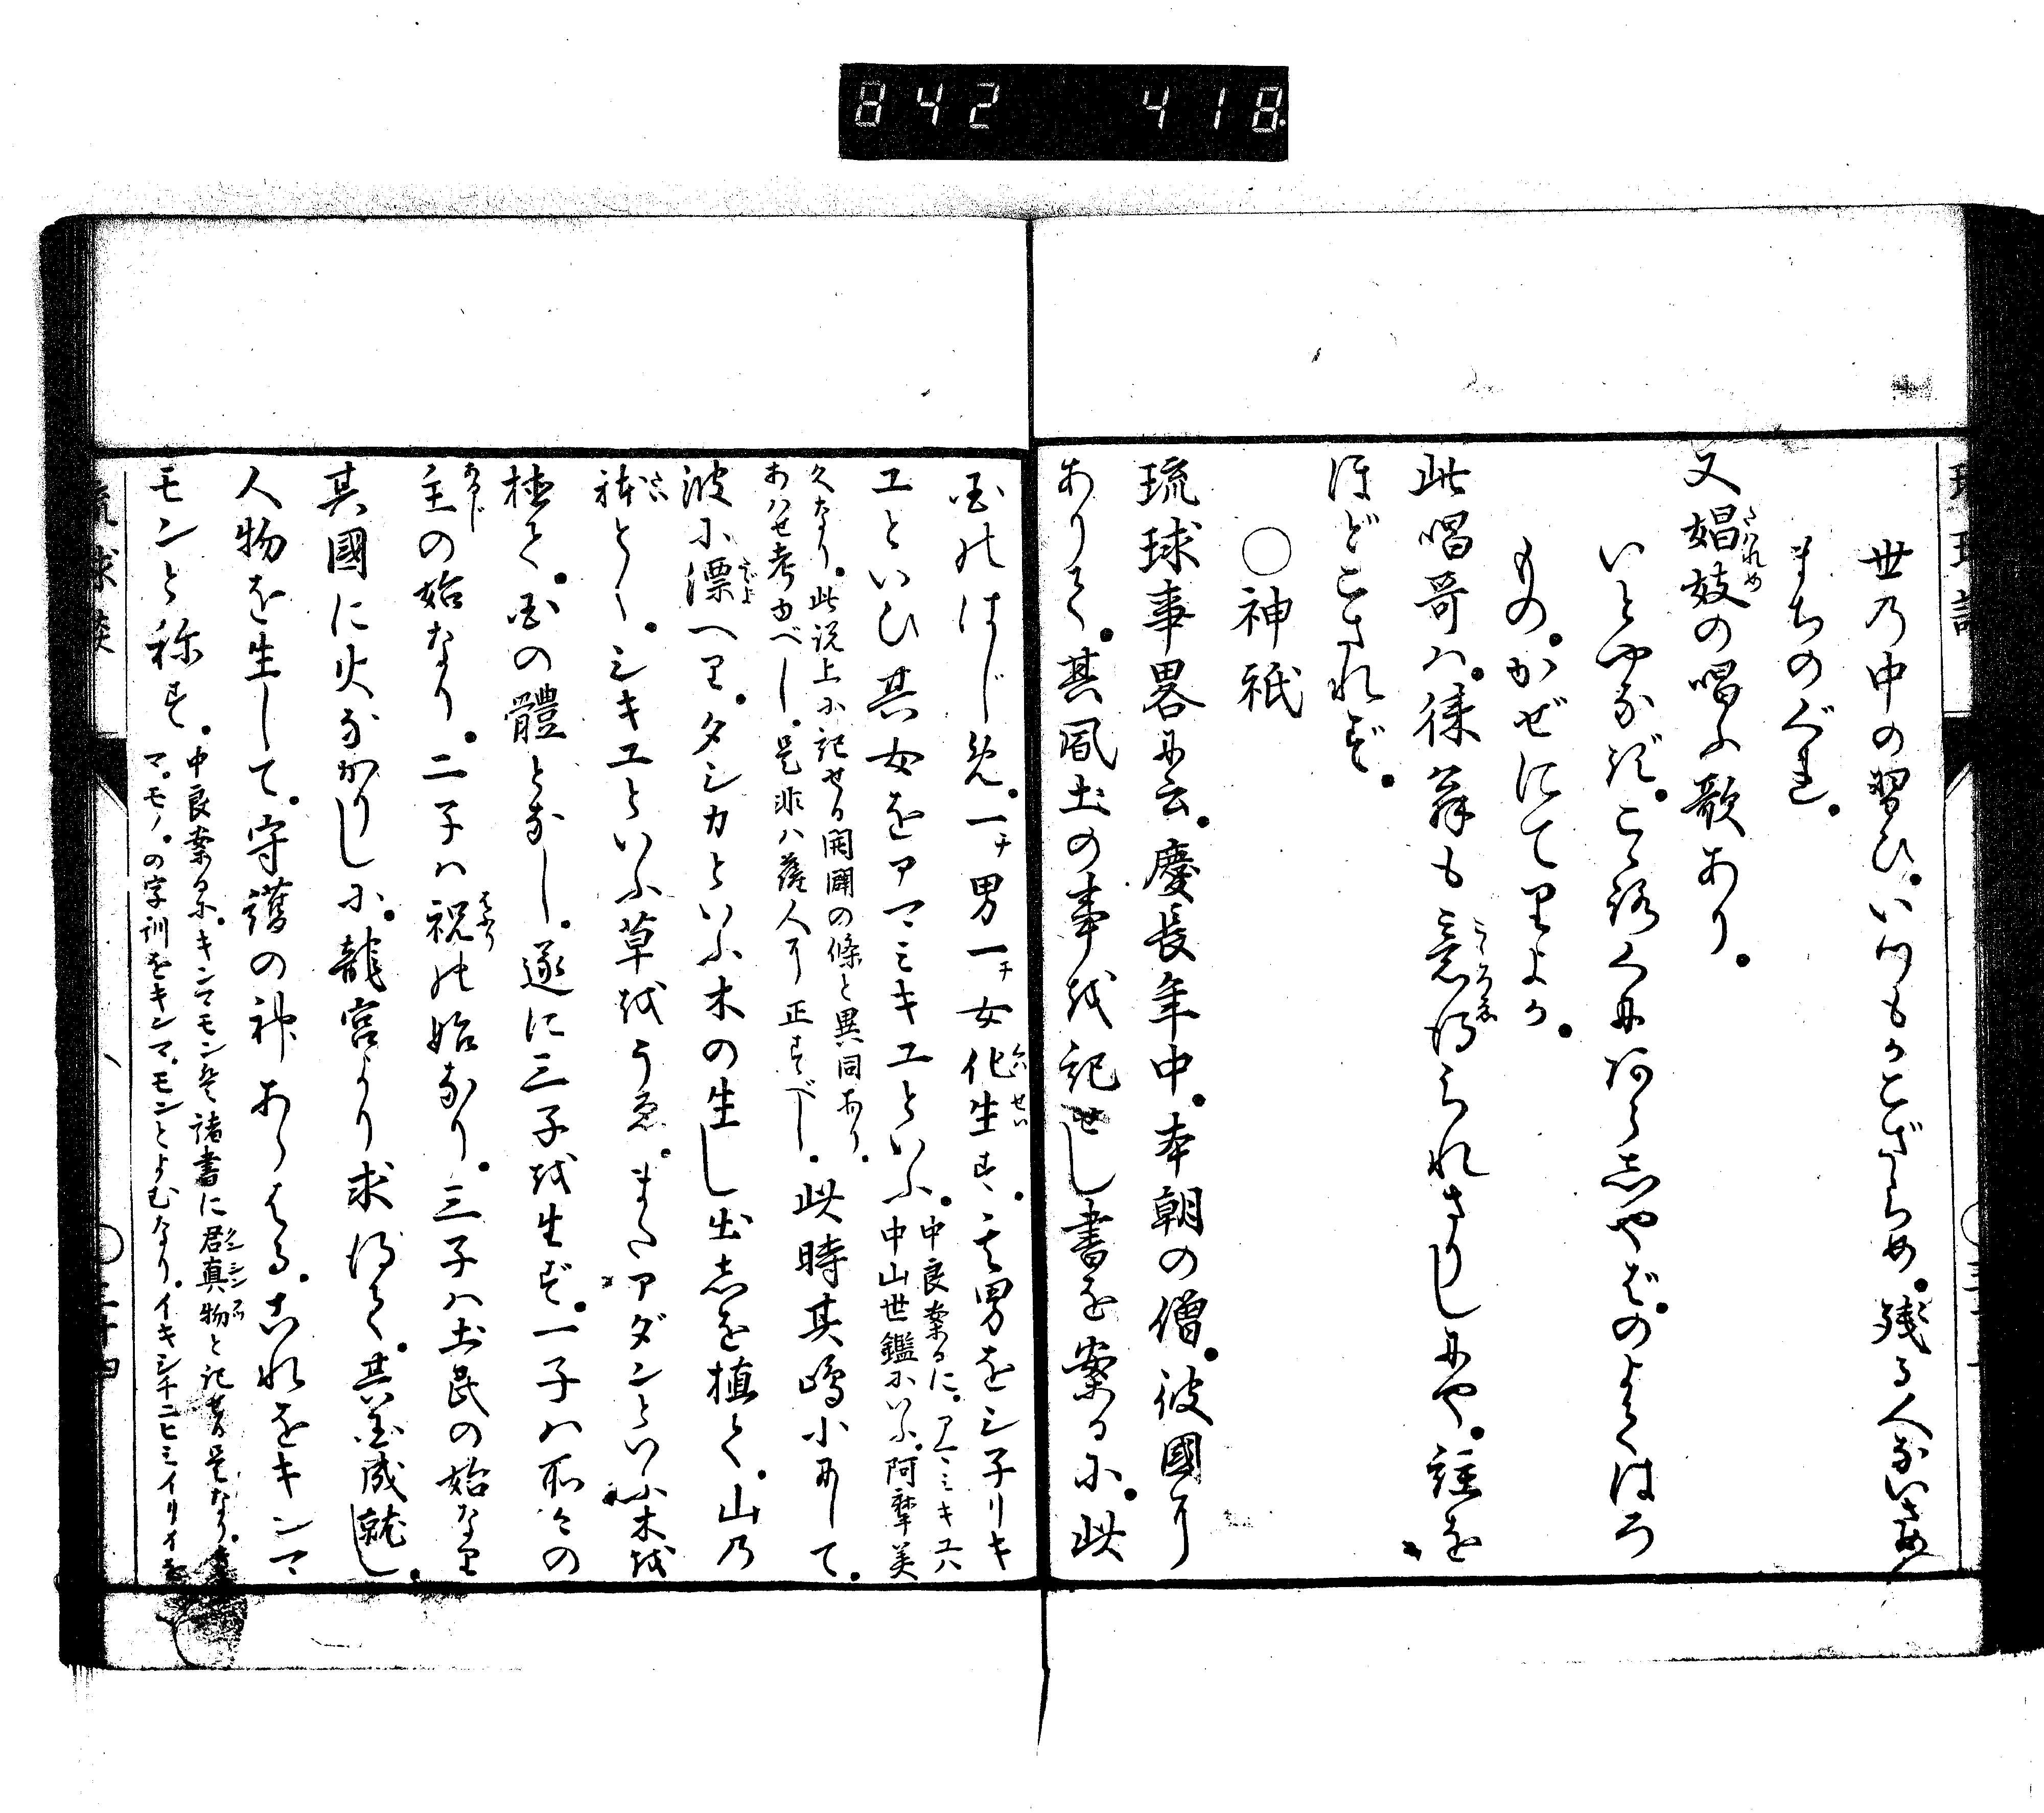 842 418
世乃中の習ひ。いつもかこざらめ。残る人ないさめ
まちのぐれ。
又娼妓の唱ふ歌あり。
いとやなぎ。こゝろくに
もの。かぜにてりよか。
此唱哥ハ。徠翁も意得られさりしにや。註を
ほどこされず。
○神祇
琉球事畧に云。慶長年中。本朝の僧。彼國に
ありて。其風土の事を記せし書を案るに。此
国のはじめ。一男一女化生す。其男をシ子リキ
ユといひ其女をアマミキユといふ。
中良案るに。アマミキユハ
中山世鑑にいふ。阿摩美
久なり。此説上に記せる開闢の條と異同あり。
あハせ考ゆべし。是非ハ薩人に正すべし。
此時其嶋小にして。
波に漂へり。タシカといふ木の生し出しを植て。山乃
体とし。シキユといふ草をうゑ。またアダンといふ木を
植て。国の體となし。遂に三子を生ず。一子ハ所々の
主の始なり。二子ハ祝の始なり。三子ハ土民の始なり
其國に火なかりしに。龍宮より求得て。其国成就し。
人物を生して。守護の神あらハる。これをキンマ
モンと称す。
中良案るに。キンマモンを諸書に君真物と記す是なり。
マ。モノ。の字訓をキンマ。モンとよむなり。